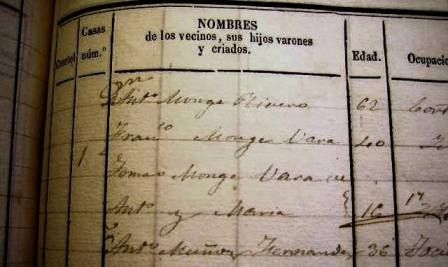 Cuartel
Casas núm.º
NOMBRES
de los vecinos, sus hijos varones
y criados.
Edad.
Ocupacio
Dn Antº Monge Rivero 62
Franco Monge Vara 40
1 Tomas Monge Vara
Antº y Maria 16 17
Antº Muñoz Fernandez 36